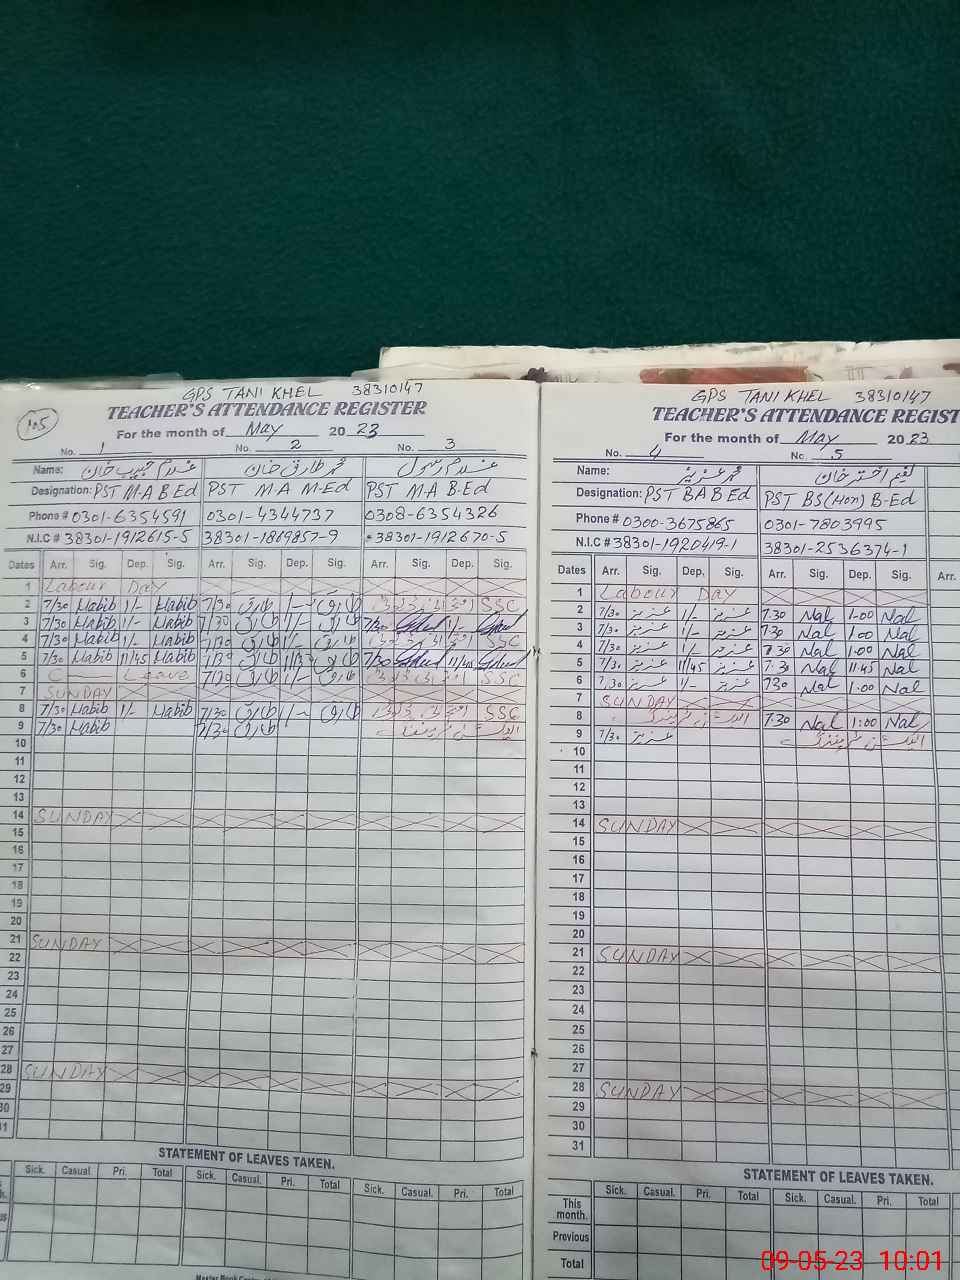 GPS TANI KHEL 38310147
105
TEACHER'S ATTENDANCE REGISTER
For the month of May 2023
No. 1 No. 2 No. 3
Name: غلام حبیب خان محمد طارق خان غلام رسول
Designation: PST M.A B.Ed PST M.A M.Ed PST M.A B.Ed
Phone # 0301-6354591 0301-4344737 0308-6354326
N.I.C # 38301-1912615-5 38301-1869857-9 38301-1912670-5
Dates Arr. Sig. Dep. Sig. Arr. Sig. Dep. Sig. Arr. Sig. Dep. Sig.
1 Labour Day
2 7/30 Habib 1/- Habib 7/30 طارق 1/- طارق SSC
3 7/30 Habib 1/- Habib 7/30 طارق 1/- طارق 7/30 1/-
4 7/30 Habib 1/- Habib 7/30 طارق 1/- طارق SSC
5 7/30 Habib 11/45 Habib 7/30 طارق طارق 7/30 11/45
6 C Leave 7/30 طارق 1/- طارق SSC
7 SUNDAY
8 7/30 Habib 1/- Habib 7/30 طارق 1/- طارق SSC
9 7/30 Habib 7/30 طارق
10
11
12
13
14 SUNDAY
15
16
17
18
19
20
21 SUNDAY
22
23
24
25
26
27
28 SUNDAY
29
30
31
STATEMENT OF LEAVES TAKEN.
Sick. Casual Pri. Total Sick. Casual. Pri. Total Sick. Casual. Pri. Total
GPS TANI KHEL 38310147
TEACHER'S ATTENDANCE REGIST
For the month of May 2023
No. 4 No. 5
Name: محمد عزیز نعیم اختر خان
Designation: PST B.A B.Ed PST BS(Hon) B-Ed
Phone # 0300-3675865 0301-7803995
N.I.C # 38301-1920419-1 38301-2536374-1
Dates Arr. Sig. Dep. Sig. Arr. Sig. Dep. Sig. Arr.
1 Labour Day
2 7/30 عزیز 1/- عزیز 7.30 Nal 1-00 Nal
3 7/30 عزیز 1/- عزیز 7.30 Nal 1.00 Nal
4 7/30 عزیز 1/- عزیز 7.30 Nal 1.00 Nal
5 7/30 عزیز 11/45 عزیز 7.30 Nal 11.45 Nal
6 7/30 عزیز 1/- عزیز 7.30 Nal 1.00 Nal
7 SUNDAY
8 7.30 Nal 1:00 Nal
9 7/30 عزیز
10
11
12
13
14 SUNDAY
15
16
17
18
19
20
21 SUNDAY
22
23
24
25
26
27
28 SUNDAY
29
30
31
STATEMENT OF LEAVES TAKEN.
Sick. Casual. Pri. Total Sick. Casual. Pri. Total
This month.
Previous
Total
09-05-23 10:01